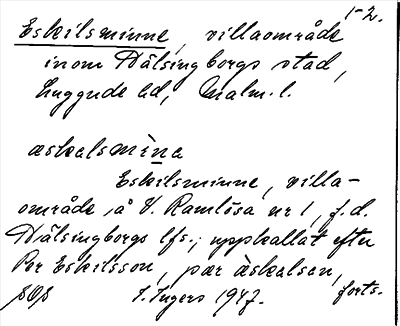 1-2.
Eskilsminne, villaområde
inom Hälsingborgs stad,
Luggude hd, Malm. l.
æskalsmìna
Eskilsminne, villa-
område å V. Ramlösa nr 1, f.d.
Hälsingborgs lfs.; uppkallat efter
Per Eskilsson, pær æ̀skalsen,
sos I. Ingers 1947. forts.